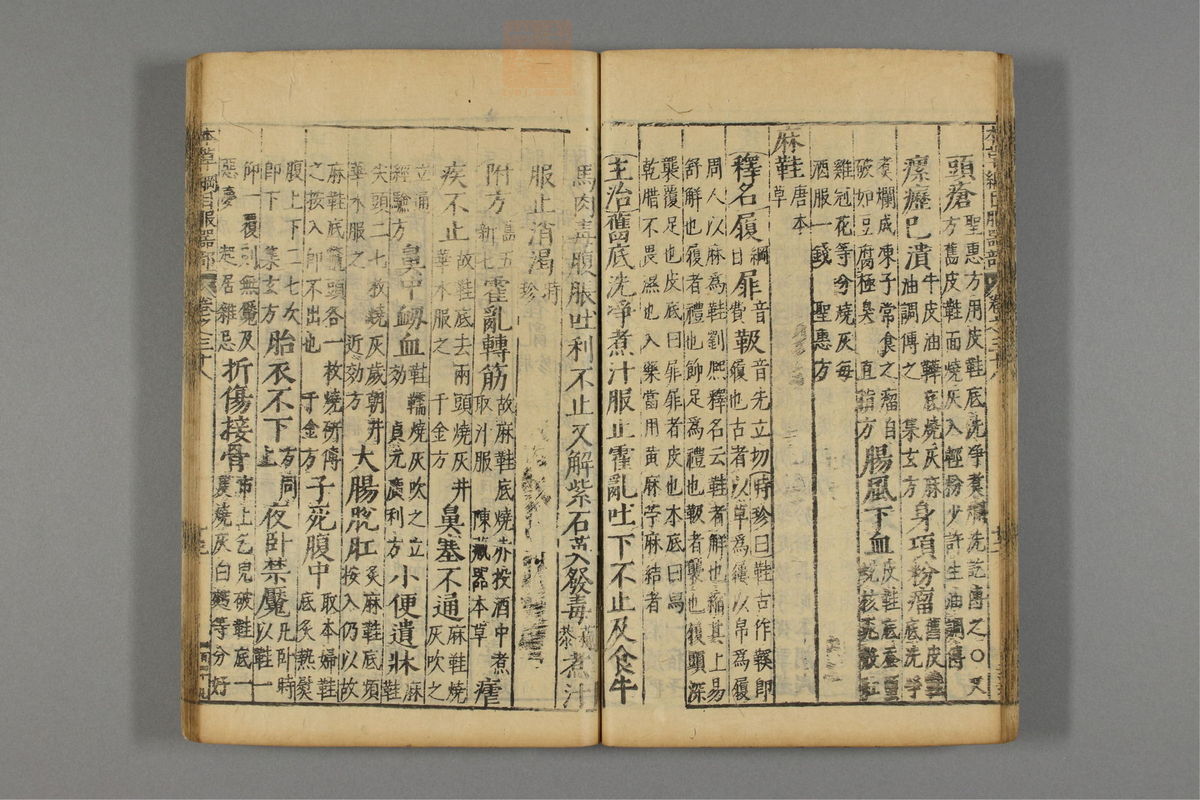 頭瘡聖惠方用皮鞋底洗淨煮爛洗訖傅之〇又方舊皮鞋面燒灰入輕粉少許生油調傅
瘰癧已潰牛皮油鞾底燒灰麻油調傅之 集玄方 身項粉瘤舊皮鞋底洗淨
煮爛成凍子常食之瘤自破如豆腐極臭 直指方 腸風下血皮鞋底蠶繭蛻核桃殼紅
雞冠花等分燒灰每酒服一錢 聖惠方
麻鞋唐本草
釋名履綱目屝音費靸音先立切時珍曰鞋古作鞵即履也古者以草爲屨以帛爲履
周人以麻爲鞋劉熙釋名云鞋者解也縮其上易舒解也履者禮也飾足爲禮也靸者襲也履頭深
襲覆足也皮底曰屝屝者皮也木底曰舄乾腊不畏濕也入藥當用黃麻苧麻結者
主治舊底洗淨煮汁服止霍亂吐下不止及食牛
馬肉毒腹脹吐利不止又解紫石英發毒蘇恭煮汁
服止消渴時珍
附方舊五新七霍亂轉筋故麻鞋底燒赤投酒中煮取汁服 陳藏器本草 瘧
疾不止故鞋底去兩頭燒灰井華水服之 千金方 鼻塞不通麻鞋燒灰吹之
立通 經驗方 鼻中衄血鞋䩺燒灰吹之立效 貞元廣利方 小便遺牀麻鞋
尖頭二七枚燒灰歲朝井華水服之 近效方 大腸脫肛炙麻鞋底頻按入仍以故
麻鞋底鼈頭各一枚燒研傅之按入即不出也 千金方 子死腹中取本婦鞋底炙熱熨
腹上下二七次即下 集玄方 胎衣不下方同上 夜卧禁魘凡卧時以鞋一
仰一覆則無魘及惡夢 起居雜忌 折傷接骨市上乞兒破鞋底一隻燒灰白麪等分好
本草綱目服器部 卷之三十八